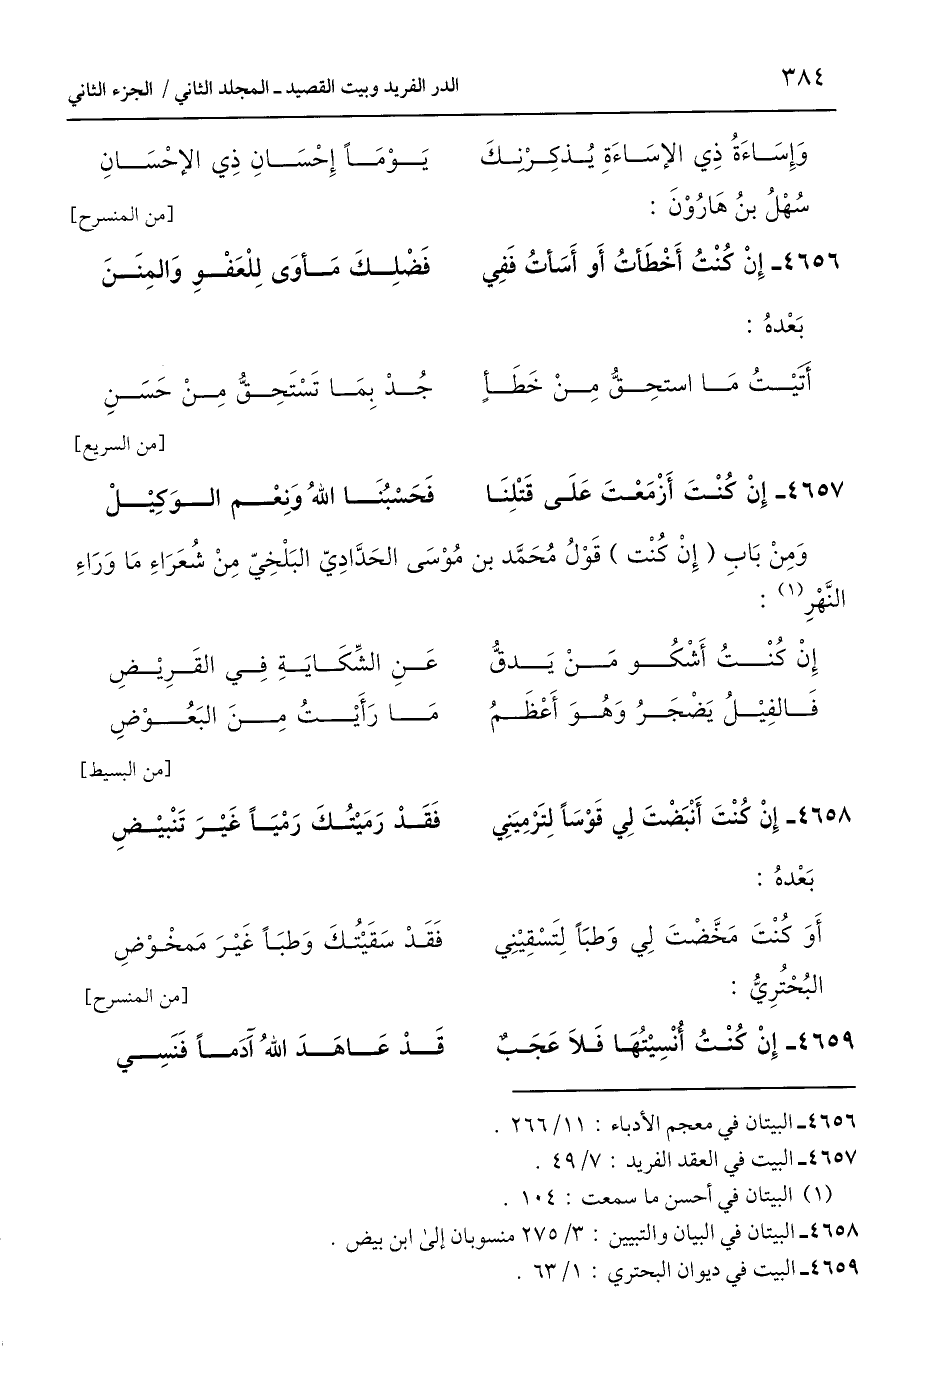 ٣٨٤
الدر الفريد وبيت القصيد ـ المجلد الثاني / الجزء الثاني
وَإِسَاءَةُ ذِي الإسَاءَةِ يُذكِرْنِكَ يَوْمَاً إِحْسَانِ ذِي الإحْسَانِ
سُهْلُ بنُ هَارُوْنَ :
[من المنسرح]
٤٦٥٦ـ إِنْ كُنْتُ أَخْطَأتُ أَو أَسَأتُ فَفِي فَضْلِكَ مَأوَى لِلْعَفْوِ وَالمِنَنِ
بَعْدهُ :
أَتَيْتُ مَا استحِقُّ مِنْ خَطَأٍ جُدْ بِمَا تَسْتَحِقُّ مِنْ حَسَنِ
[من السريع]
٤٦٥٧ـ إِنْ كُنْتَ أَزْمَعْتَ عَلَى قَتْلِنَا فَحَسْبُنَا اللهُ وَنِعْمِ الوَكِيْلْ
وَمِنْ بَابِ ( إِنْ كُنْت ) قَوْلُ مُحَمَّد بن مُوْسَى الحَدَّادِيّ البَلْخِيّ مِنْ شُعَرَاءِ مَا وَرَاءِ
النَّهْرِ(١) :
إِنْ كُنْتُ أَشْكُو مَنْ يَدقُّ عَنِ الشِّكَايَةِ فِي القَرِيْضِ
فَالفِيْلُ يَضْجَرُ وَهُوَ أَعْظَمُ مَا رَأَيْتُ مِنَ البَعُوْضِ
[من البسيط]
٤٦٥٨ـ إِنْ كُنْتَ أَنْبَضْتَ لِي قَوْسَاً لِتَرْمِيَنِي فَقَدْ رَمَيْتُكَ رَمْيَاً غَيْرَ تَنْبِيْضِ
بَعْدهُ :
أَوَ كُنْتَ مَخَّضْتَ لِي وَطبَاً لِتَسْقِيْنِي فَقَدْ سَقَيْتُكَ وَطبَاً غَيْرَ مَمخُوْضِ
البُحْتُرِيُّ :
[من المنسرح]
٤٦٥٩ـ إِنْ كُنْتُ أُنْسِيْتُهَا فَلاَ عَجَبٌ قَدْ عَاهَدَ اللهُ آدَمَاً فَنَسِي
٤٦٥٦ـ البيتان في معجم الأدباء : ١١/ ٢٦٦ .
٤٦٥٧ـ البيت في العقد الفريد : ٧/ ٤٩ .
(١) البيتان في أحسن ما سمعت : ١٠٤ .
٤٦٥٨ـ البيتان في البيان والتبيين : ٣/ ٢٧٥ منسوبان إلىٰ ابن بيض .
٤٦٥٩ـ البيت في ديوان البحتري : ١/ ٦٣ .